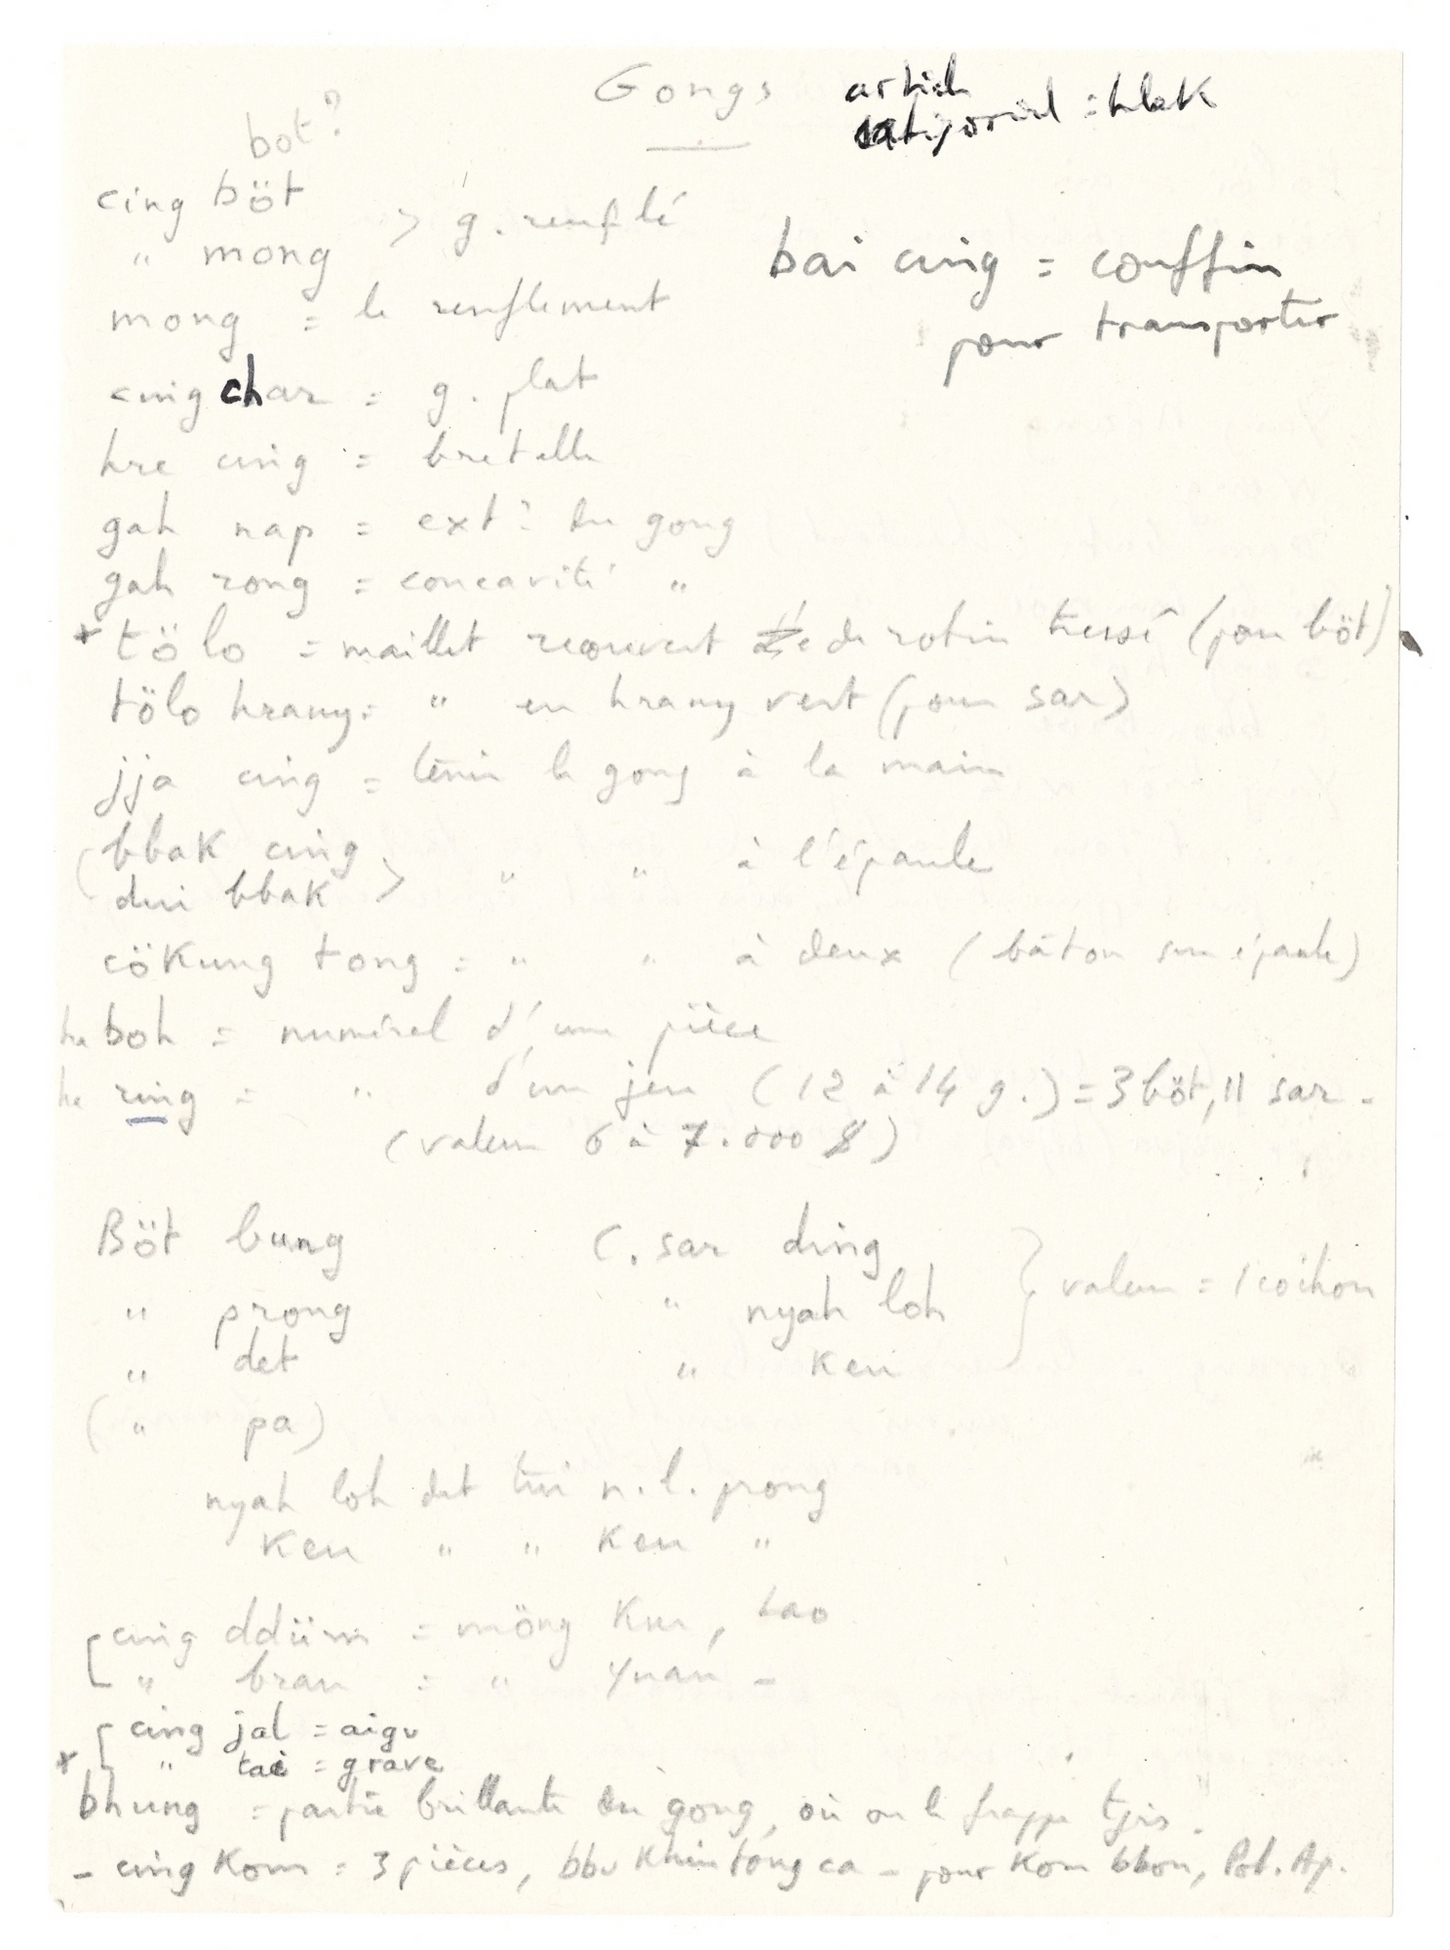 Gongs
article
catégoriel = bbak
bot?
cing böt
" mong > g. renflé
mong = le renflement
bai cing = couffin
pour transporter
cing char = g. plat
hre cing = bretelle
gah nap = ext? du gong
gah rong = concavité "
+ tölo = maillet recouvert de rotin tressé (pour böt)
tölo hrany = " en hrany vert (pour sar)
jja cing = tenir le gong à la main
(bbak cing
dui bbak > " " à l'épaule
cökung tong = " " à deux (bâton sur épaule)
ha boh = numéral d'une pièce
ha ring = " d'un jeu (12 à 14 g.) = 3 böt, 11 sar -
(valeur 6 à 7.000 $)
Böt bung (. sar ding
" prong " nyah loh } valeur = 1 cochon
" det " ken
( " pa)
nyah loh det tui n.l. prong
ken " " ken "
[cing ddüm = möng Kur, Lao
" bran = " Yuan -
[cing jal = aigu
x " tac = grave
bhung = partie brillante du gong, où on le frappe tjrs.
- cing Kom = 3 pièces, bbu Khin tong ca - pour Kom bbon, Pot. Ap.